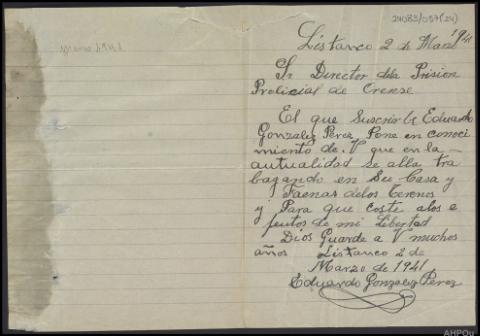 24083/057(24)
Marzo 1941
Listanco 2 de Marzo 1941
Sr Director dela Prision
Prolicial de Orense
El que Suscrive Eduardo
Gonzalez Perez Pone en conoci
miento de V que en la
autualidad se alla tra
bagando en Su Casa y
Faenas delos Terenos
y Para que coste alos e
feutos de mi Libertad
Dios Guarde a V muchos
años Listanco 2 de
Marzo de 1941
Eduardo Gonzalez Perez
AHPOu